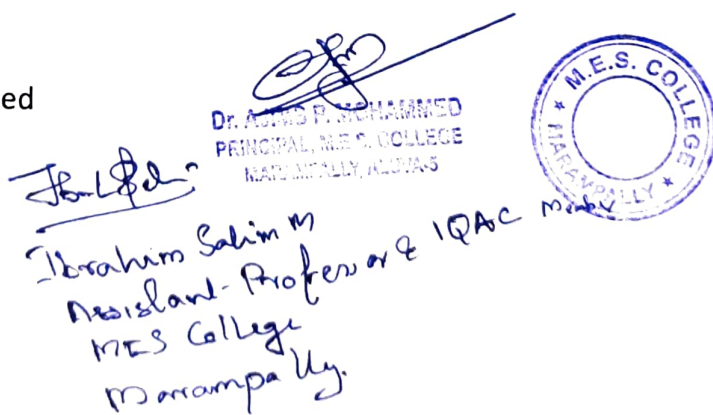 ed
Dr. P. MOHAMMED
PRINCIPAL, M.E.S. COLLEGE
MARAMPALLY, ALUVA-5
M.E.S. COLLEGE
MARAMPALLY
Ibrahim Salim M
Assistant-Professor & IQAC Member
MES College
Marampally.